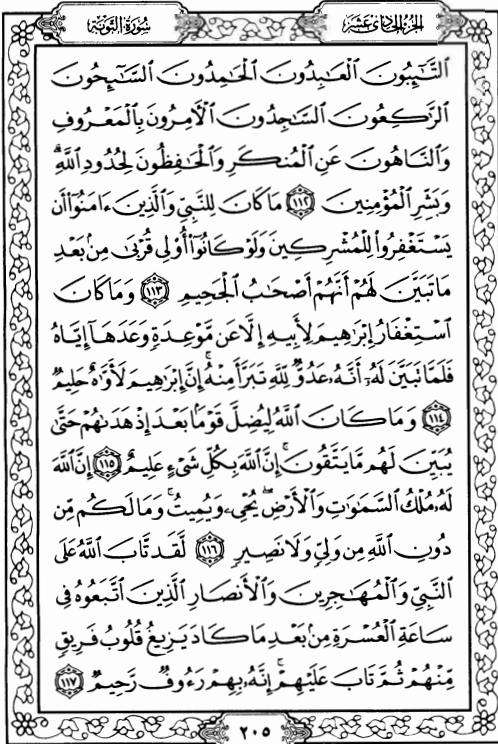 سُورَةُ التَّوْبَةِ
الجُزْءُ الحَادِي عَشَرَ
ٱلتَّـٰٓئِبُونَ ٱلْعَـٰبِدُونَ ٱلْحَـٰمِدُونَ ٱلسَّـٰٓئِحُونَ
ٱلرَّٰكِعُونَ ٱلسَّـٰجِدُونَ ٱلْـَٔامِرُونَ بِٱلْمَعْرُوفِ
وَٱلنَّاهُونَ عَنِ ٱلْمُنكَرِ وَٱلْحَـٰفِظُونَ لِحُدُودِ ٱللَّهِ ۗ
وَبَشِّرِ ٱلْمُؤْمِنِينَ ١١٢ مَا كَانَ لِلنَّبِيِّ وَٱلَّذِينَ ءَامَنُوٓا۟ أَن
يَسْتَغْفِرُوا۟ لِلْمُشْرِكِينَ وَلَوْ كَانُوٓا۟ أُو۟لِى قُرْبَىٰ مِنۢ بَعْدِ
مَا تَبَيَّنَ لَهُمْ أَنَّهُمْ أَصْحَـٰبُ ٱلْجَحِيمِ ١١٣ وَمَا كَانَ
ٱسْتِغْفَارُ إِبْرَٰهِيمَ لِأَبِيهِ إِلَّا عَن مَّوْعِدَةٍ وَعَدَهَآ إِيَّاهُ
فَلَمَّا تَبَيَّنَ لَهُۥٓ أَنَّهُۥ عَدُوٌّ لِّلَّهِ تَبَرَّأَ مِنْهُ ۚ إِنَّ إِبْرَٰهِيمَ لَأَوَّٰهٌ حَلِيمٌ
١١٤ وَمَا كَانَ ٱللَّهُ لِيُضِلَّ قَوْمًۢا بَعْدَ إِذْ هَدَىٰهُمْ حَتَّىٰ
يُبَيِّنَ لَهُم مَّا يَتَّقُونَ ۚ إِنَّ ٱللَّهَ بِكُلِّ شَىْءٍ عَلِيمٌ ١١٥ إِنَّ ٱللَّهَ
لَهُۥ مُلْكُ ٱلسَّمَـٰوَٰتِ وَٱلْأَرْضِ ۖ يُحْىِۦ وَيُمِيتُ ۚ وَمَا لَكُم مِّن
دُونِ ٱللَّهِ مِن وَلِىٍّ وَلَا نَصِيرٍ ١١٦ لَّقَد تَّابَ ٱللَّهُ عَلَى
ٱلنَّبِىِّ وَٱلْمُهَـٰجِرِينَ وَٱلْأَنصَارِ ٱلَّذِينَ ٱتَّبَعُوهُ فِى
سَاعَةِ ٱلْعُسْرَةِ مِنۢ بَعْدِ مَا كَادَ يَزِيغُ قُلُوبُ فَرِيقٍ
مِّنْهُمْ ثُمَّ تَابَ عَلَيْهِمْ ۚ إِنَّهُۥ بِهِمْ رَءُوفٌ رَّحِيمٌ ١١٧
٢٠٥